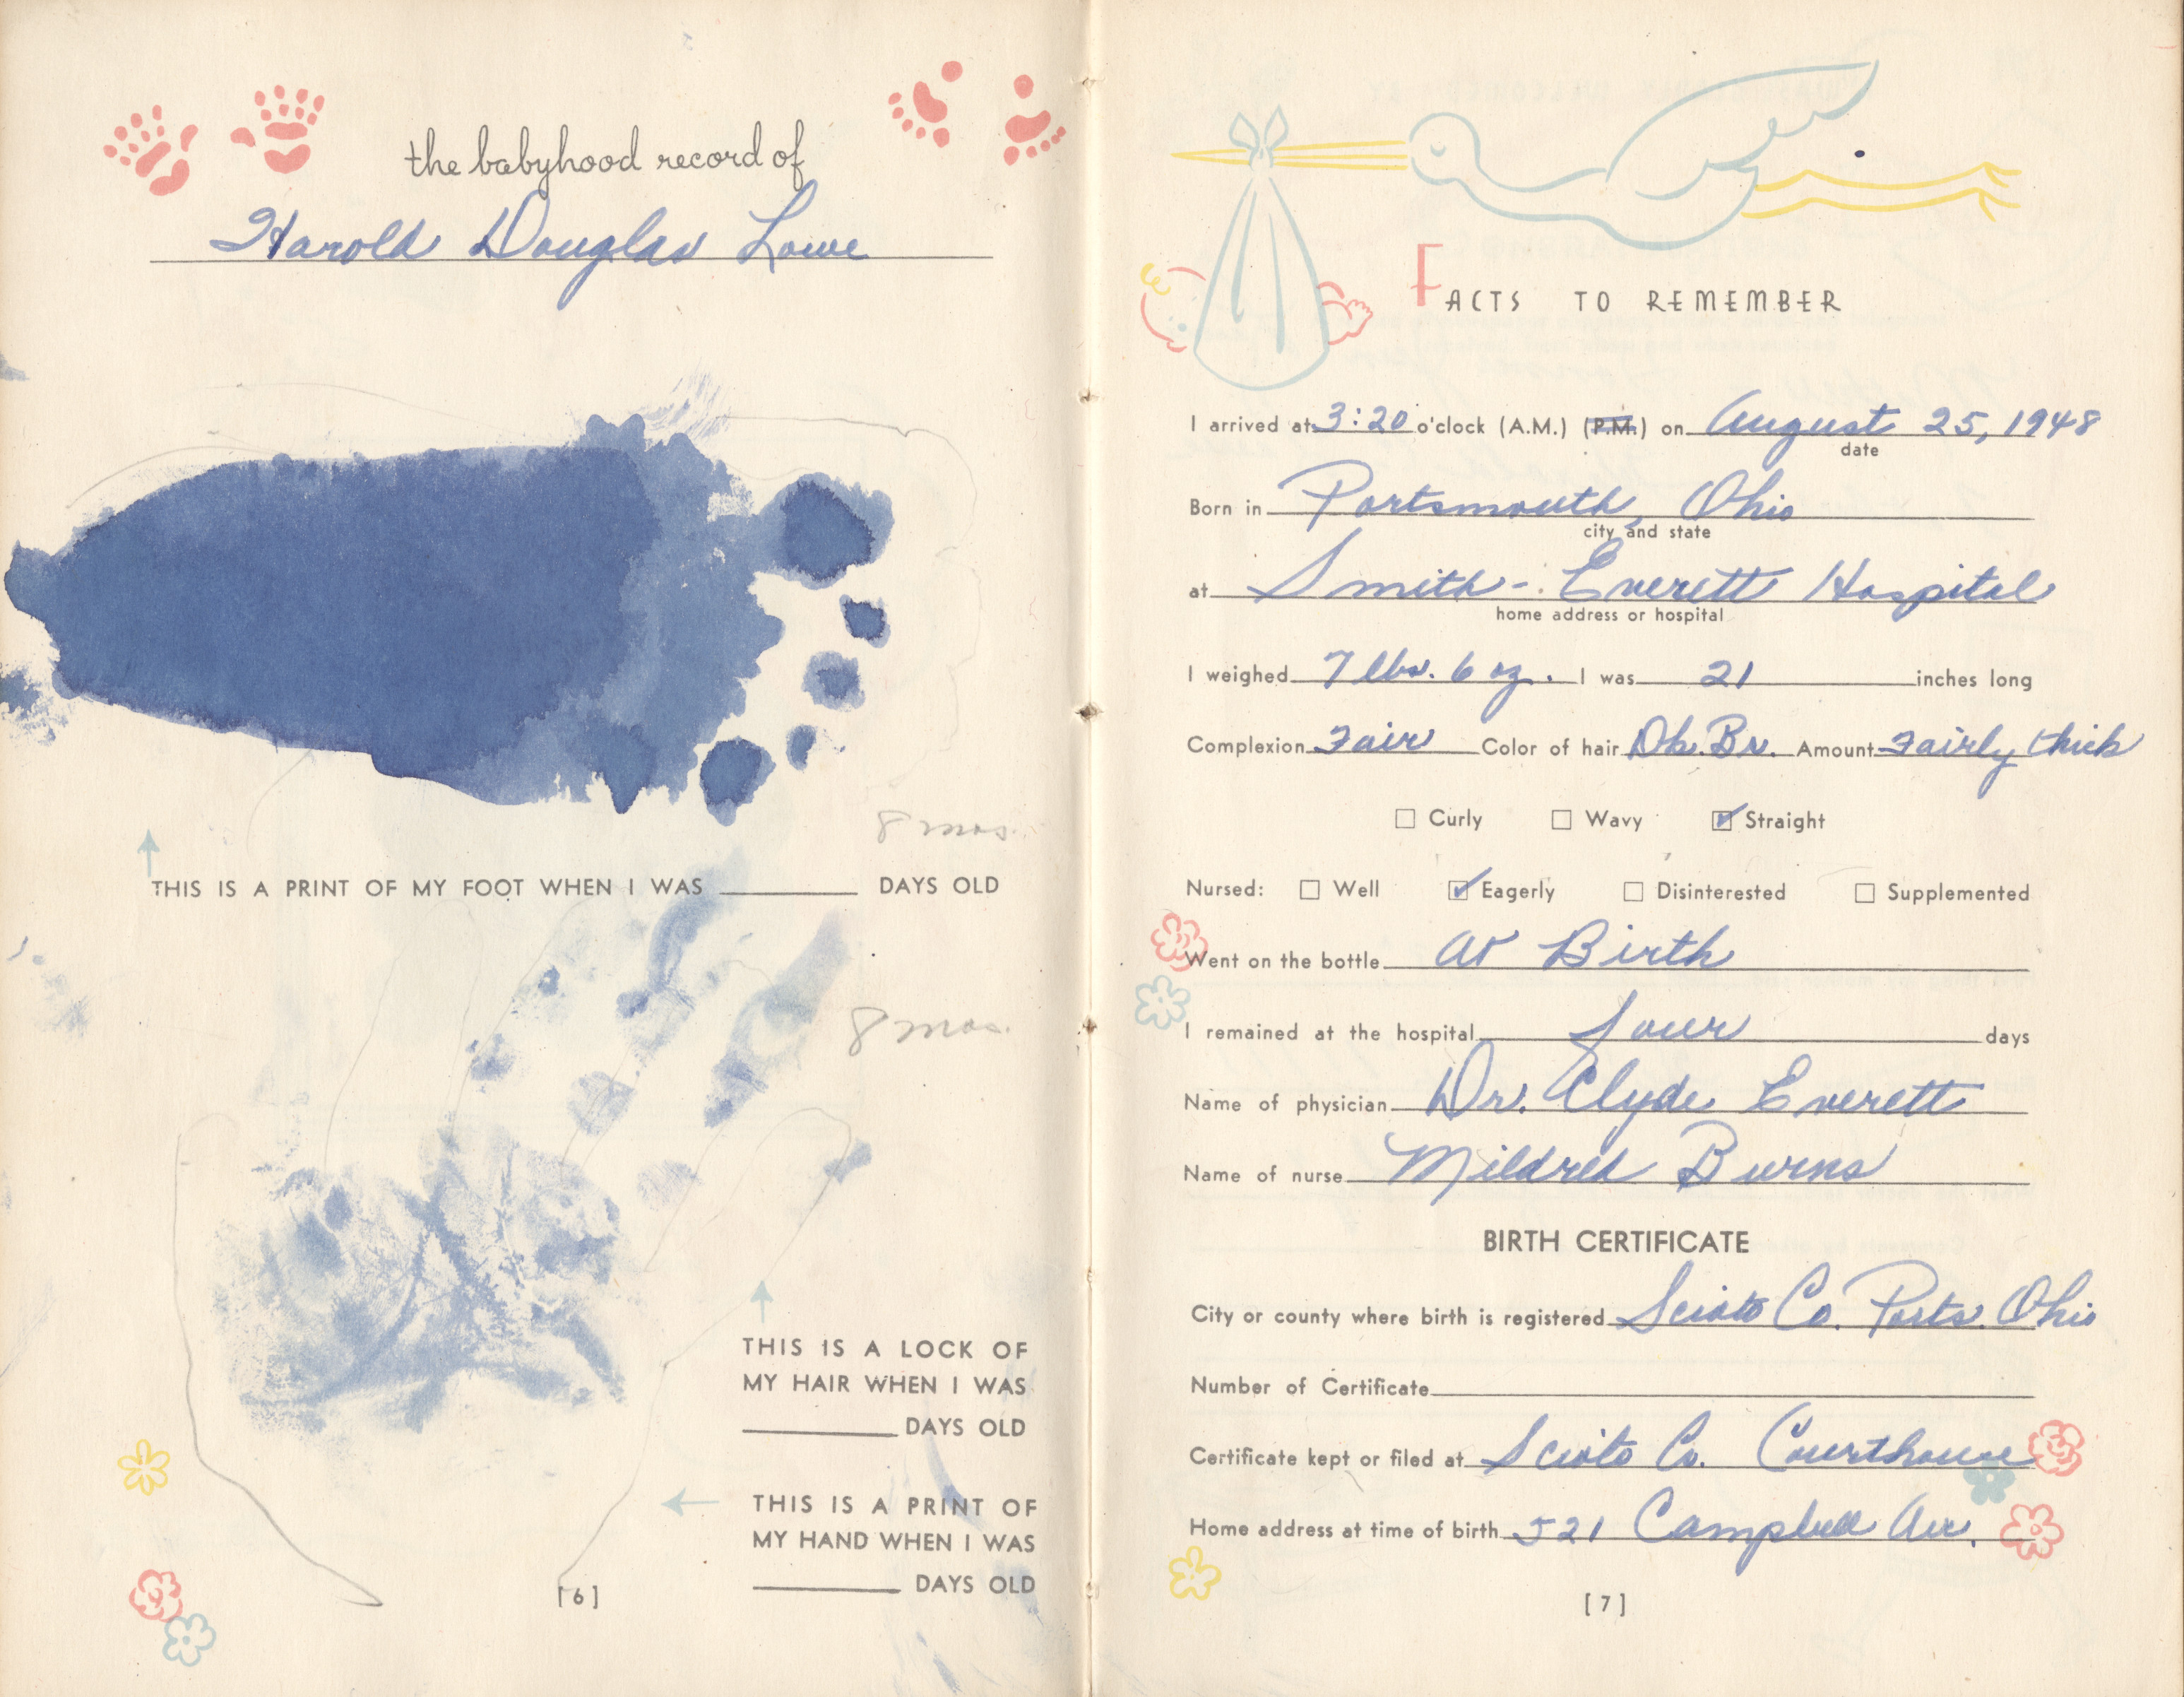 the babyhood record of
Harold Douglas Lowe
8 mos.
THIS IS A PRINT OF MY FOOT WHEN I WAS ________ DAYS OLD
8 mos.
THIS IS A LOCK OF
MY HAIR WHEN I WAS
________ DAYS OLD
THIS IS A PRINT OF
MY HAND WHEN I WAS
________ DAYS OLD
[6]
FACTS TO REMEMBER
I arrived at 3:20 o'clock (A.M.) (P.M.) on August 25, 1948
date
Born in Portsmouth, Ohio
city and state
at Smith-Everett Hospital
home address or hospital
I weighed 7 lbs. 6 oz. I was 21 inches long
Complexion Fair Color of hair Dk. Br. Amount Fairly thick
Curly Wavy Straight
Nursed: Well Eagerly Disinterested Supplemented
Went on the bottle at Birth
I remained at the hospital four days
Name of physician Dr. Clyde Everett
Name of nurse Mildred Burns
BIRTH CERTIFICATE
City or county where birth is registered Scioto Co. Ports. Ohio
Number of Certificate
Certificate kept or filed at Scioto Co. Courthouse
Home address at time of birth 521 Campbell Ave.
[7]